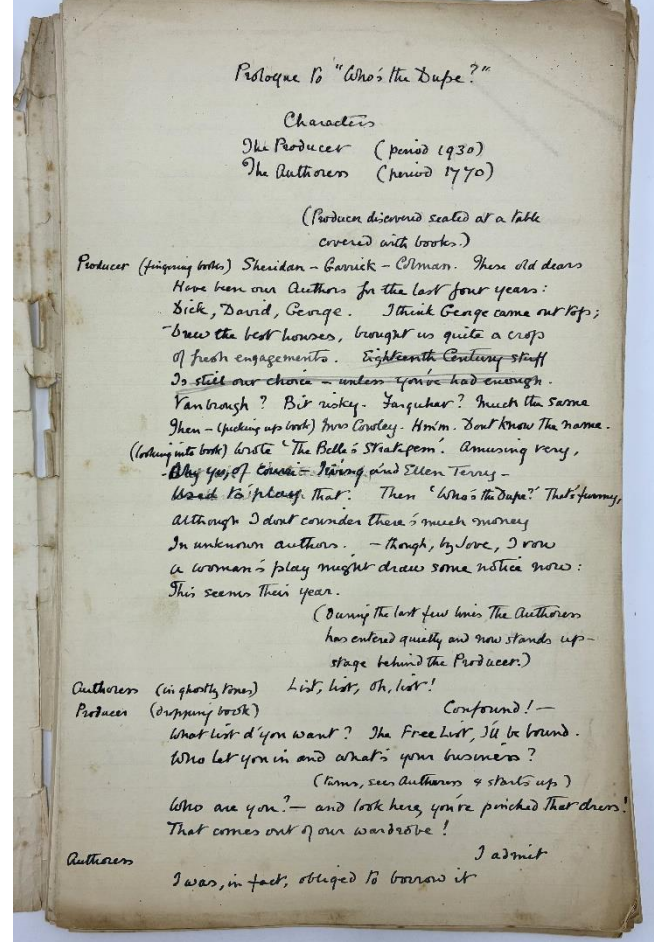 Prologue to "Who's the Dupe?"
Characters
The Producer (period 1930)
The Authoress (period 1770)
(Producer discovered seated at a table
covered with books.)
Producer (fingering books) Sheridan – Garrick – Colman. These old dears
Have been our Authors for the last four years:
Dick, David, George. I think George came out tops;
Drew the best houses, brought us quite a crop
of fresh engagements. Eighteenth Century stuff
Is still our choice – unless you've had enough.
Vanbrough? Bit risky. Farquhar? Much the same
Then – (picking up book) Mrs Cowley. Hm'm. Don't know the name.
(looking into book) Wrote 'The Belle's Stratagem'. Amusing very,
Why yes, of course – Irving and Ellen Terry –
Used to play that. Then 'Who's the Dupe?' That's funny,
Although I dont consider there's much money
In unknown authors. – though, by Jove, I vow
a woman's play might draw some notice now:
This seems their year.
(During the last few lines The Authoress
has entered quietly and now stands up-
stage behind the Producer.)
Authoress (in ghostly tones) List, list, oh, list!
Producer (dropping book) Confound! –
What list d'you want? The Free List, I'll be bound.
Who let you in and what's your business?
(turns, sees Authoress & starts up)
Who are you? – and look here, you've pinched that dress!
That comes out of our wardrobe!
Authoress I admit
I was, in fact, obliged to borrow it